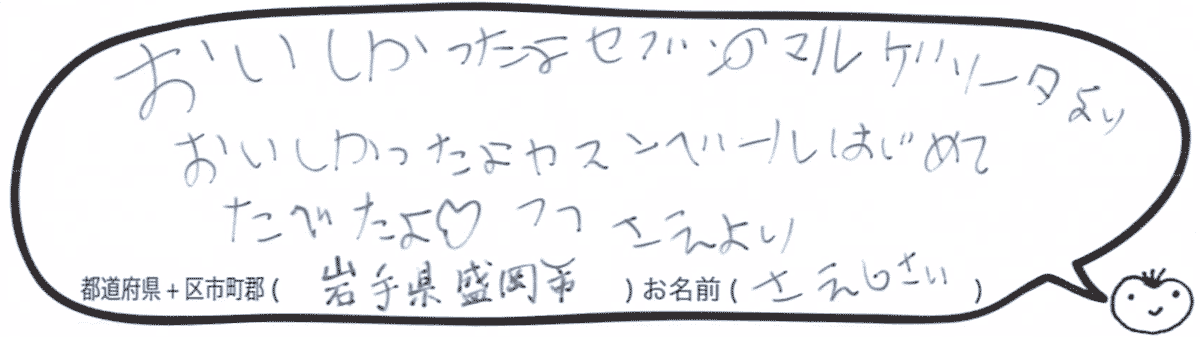 おいしかったよセブンのマルゲリータより
おいしかったよカマンベールはじめて
たべたよ♡ フフ さえより
都道府県+区市町郡( 岩手県盛岡市 )お名前( さえ 6さい )